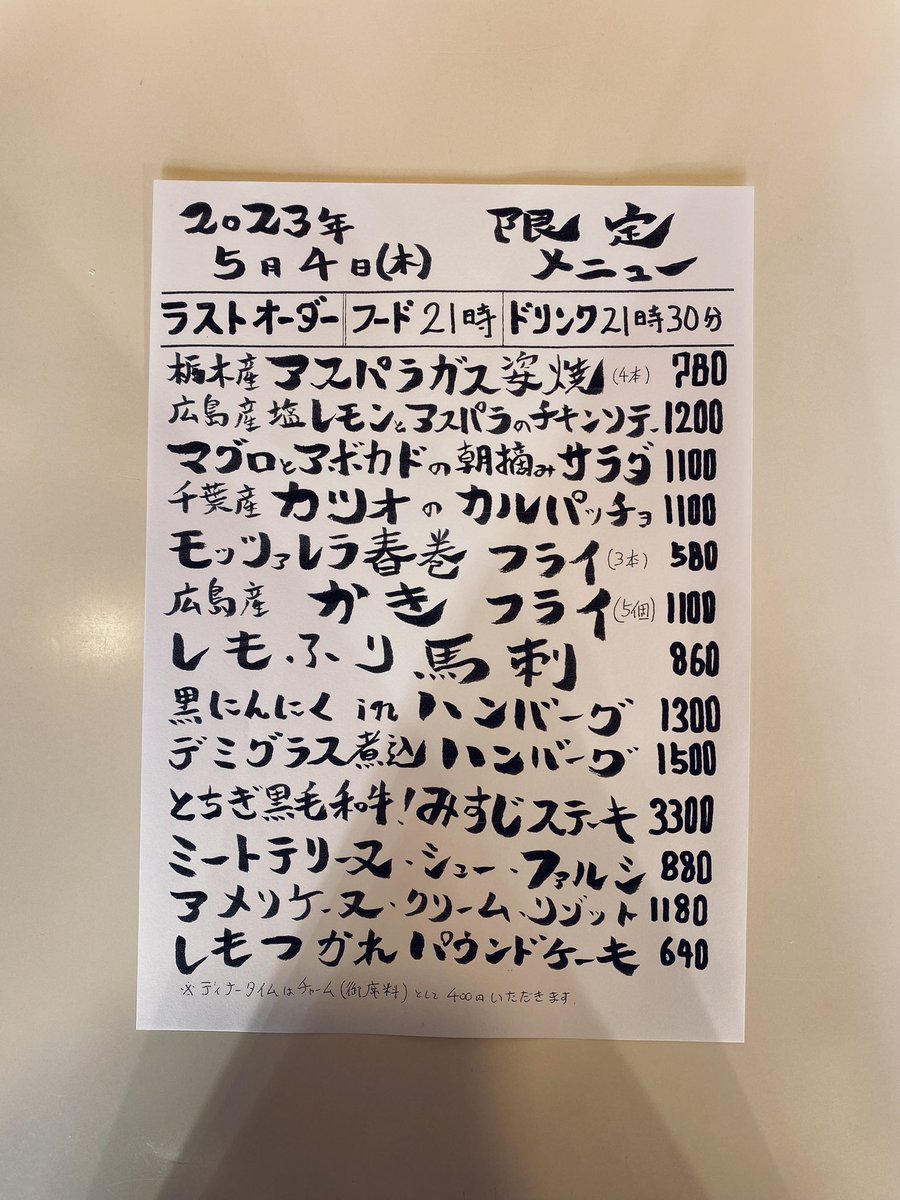 2023年 限定
5月4日(木) メニュー
ラストオーダー フード21時 ドリンク21時30分
栃木産 アスパラガス姿焼(4本) 780
広島産塩レモンとアスパラのチキンソテー 1200
マグロとアボカドの朝摘みサラダ 1100
千葉産 カツオのカルパッチョ 1100
モッツァレラ春巻 フライ(3本) 580
広島産 かき フライ(5個) 1100
しもふり馬刺 860
黒にんにく in ハンバーグ 1300
デミグラス煮込ハンバーグ 1500
とちぎ黒毛和牛!みすじステーキ 3300
ミートテリーヌ・シュー・ファルシ 880
アメリケーヌ・クリーム・リゾット 1180
しもつかれパウンドケーキ 640
※ディナータイムはチャーム(御席料)として400円いただきます。